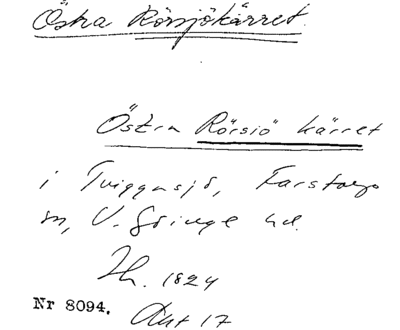 Östra Rörsjökärret.
Östra Rörsiö kärret
i Tviggasjö, Farstorps
sn, V. Göinge hd.
Th. 1824
Nr 8094. Akt 17